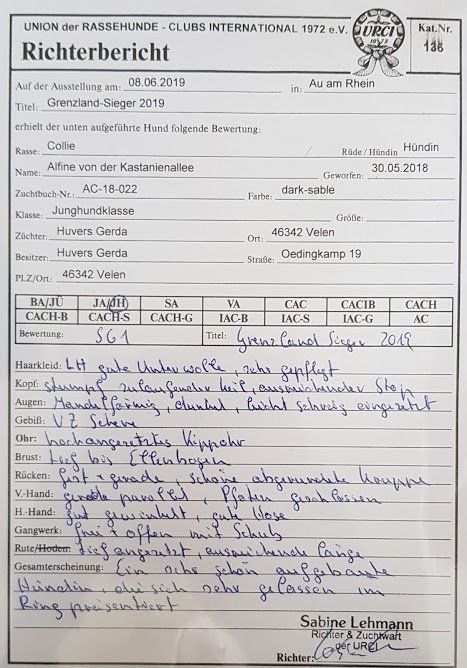 UNION der RASSEHUNDE - CLUBS INTERNATIONAL 1972 e.V.
URCI
1972
Kat.Nr.
136
Richterbericht
Auf der Ausstellung am: 08.06.2019 in: Au am Rhein
Titel: Grenzland-Sieger 2019
erhielt der unten aufgeführte Hund folgende Bewertung:
Rasse: Collie Rüde / Hündin Hündin
Name: Alfine von der Kastanienallee Geworfen: 30.05.2018
Zuchtbuch-Nr.: AC-18-022 Farbe: dark-sable
Klasse: Junghundklasse Größe:
Züchter: Huvers Gerda Ort: 46342 Velen
Besitzer: Huvers Gerda Straße: Oedingkamp 19
PLZ/Ort: 46342 Velen
BA/JÜ JA/JH SA VA CAC CACIB CACH
CACH-B CACH-S CACH-G IAC-B IAC-S IAC-G AC
Bewertung: SG1 Titel: Grenzland Sieger 2019
Haarkleid: LH gute Unterwolle, sehr gepflegt
Kopf: stumpf zulaufender Keil, ausreichender Stop
Augen: Mandelförmig, dunkel, leicht schräg eingesetzt
Gebiß: VZ Schere
Ohr: hochangesetztes Kippohr
Brust: tief bis Ellenbogen
Rücken: fest + gerade, schöne abgerundete Kruppe
V.-Hand: gerade parallel, Pfoten geschlossen
H.-Hand: gut gewinkelt, gute Hose
Gangwerk: frei + offen mit Schub
Rute/Hoden: tief angesetzt, ausreichende Länge
Gesamterscheinung: Ein sehr schön aufgebaute
Hündin, die sich sehr gelassen im
Ring präsentiert
Sabine Lehmann
Richter & Zuchtwart
der URCI
Richter: